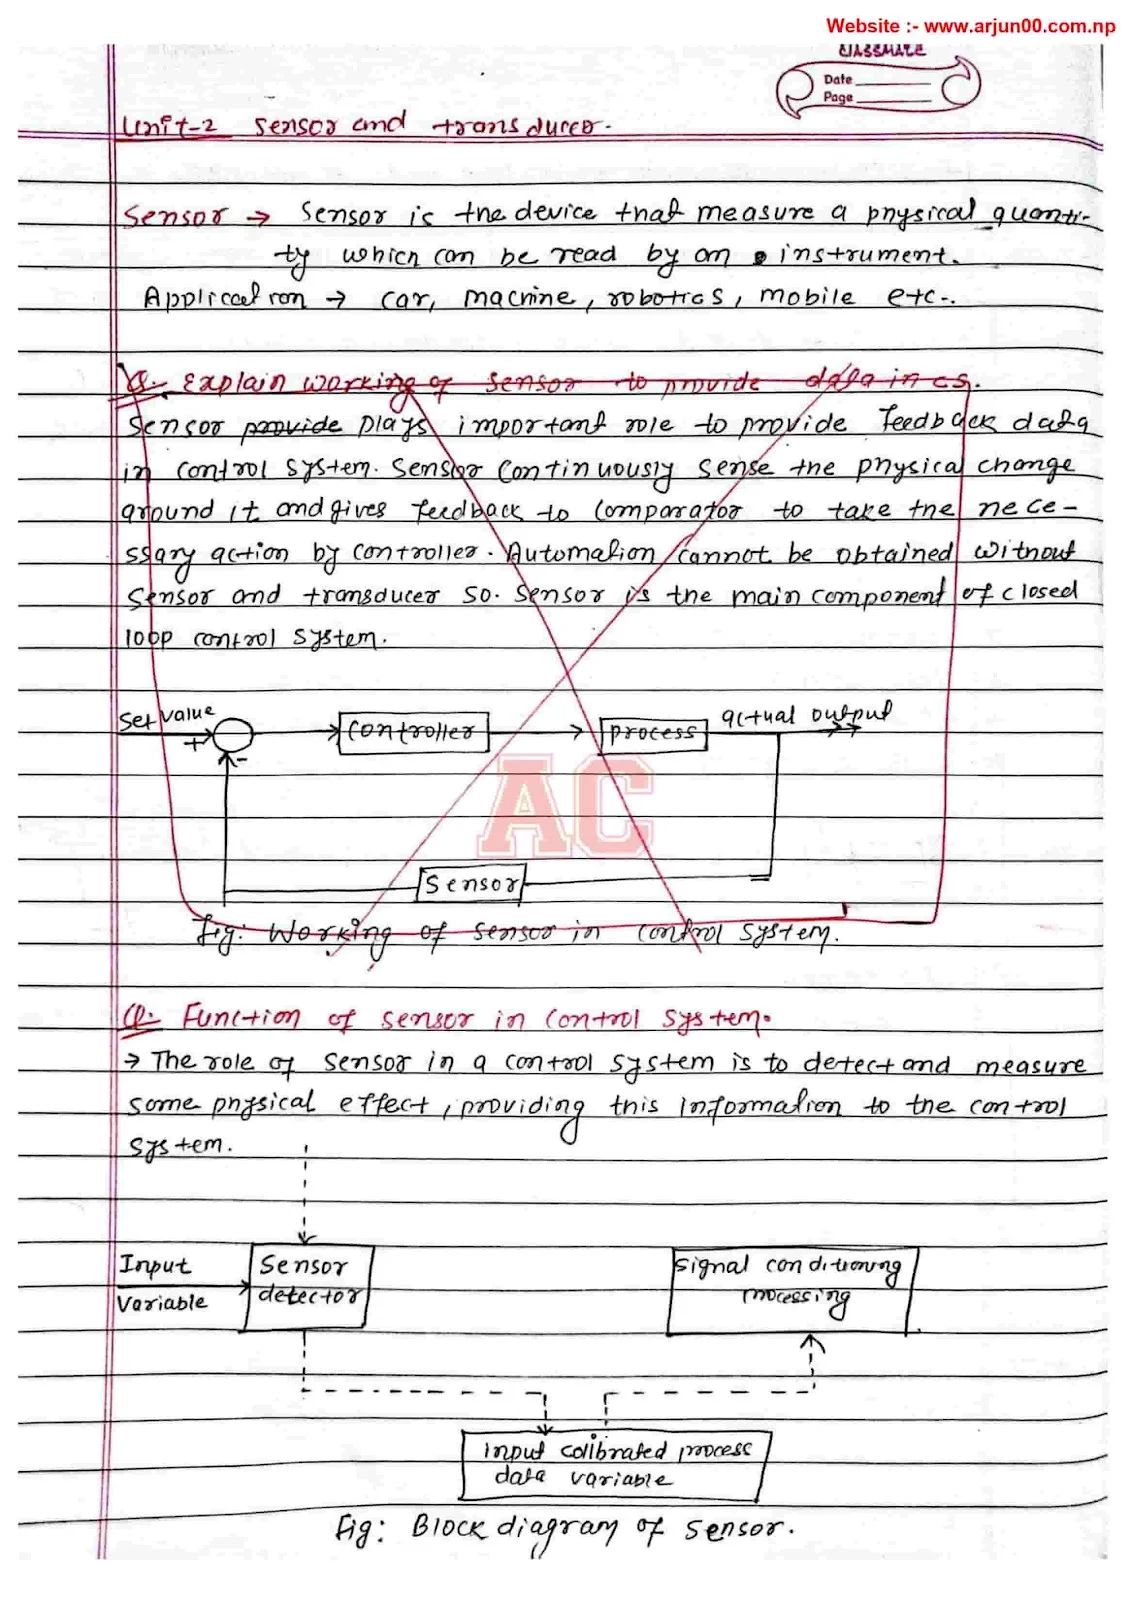 Website :- www.arjun00.com.np
CLASSMATE
Date
Page
Unit-2 Sensor and transducer.
Sensor → Sensor is the device that measure a physical quanti-
ty which can be read by an instrument.
Application → car, machine, robotics, mobile etc-.
Q. Explain working of sensor to provide data in cs.
Sensor provide plays important role to provide feedback data
in control system. Sensor continuously sense the physical change
around it and gives feedback to comparator to take the nece-
ssary action by controller. Automation cannot be obtained without
Sensor and transducer so. Sensor is the main component of closed
loop control system.
Set value
actual output
+
controller
process
-
AC
Sensor
fig: Working of sensor in control system.
Q. Function of sensor in control system.
→ The role of sensor in a control system is to detect and measure
some physical effect, providing this information to the control
system.
Input
Variable
Sensor
detector
Signal conditioning
processing
input calibrated process
data variable
fig: Block diagram of sensor.